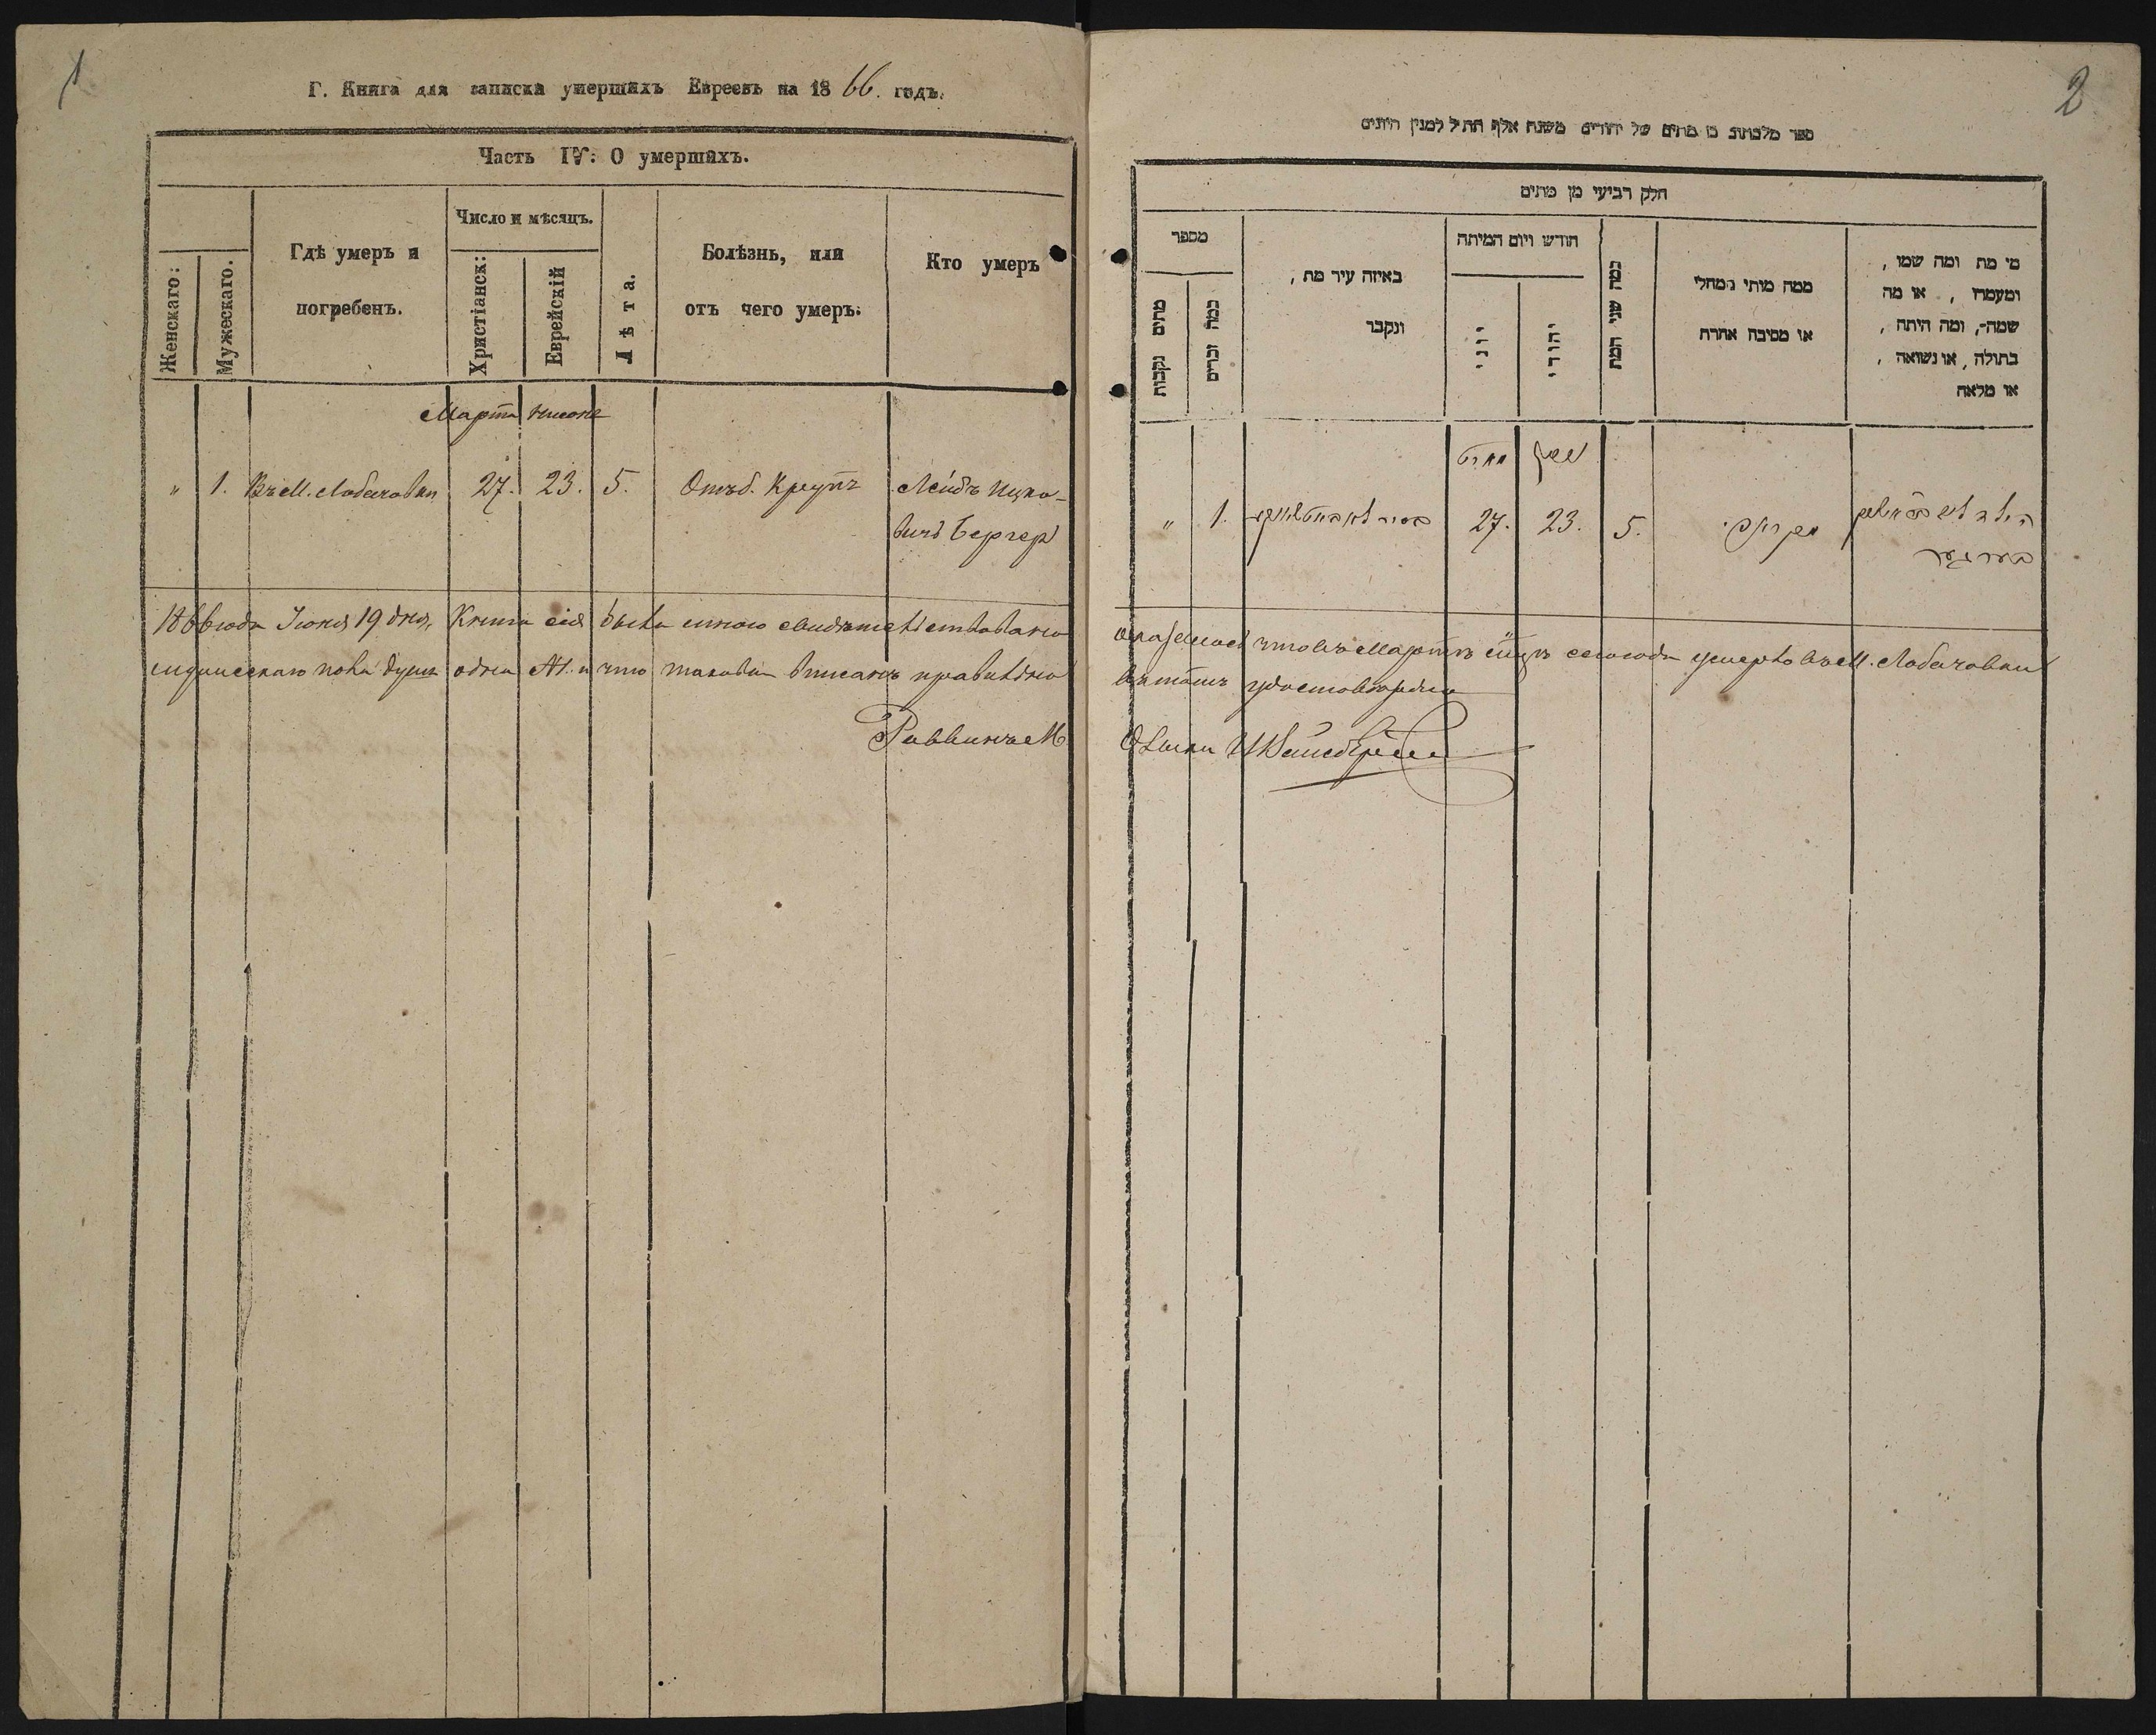 1
Г. Книга для записки умершихъ Евреевъ на 1866. годъ.
Часть IV: О умершихъ.
Женскаго:
Мужескаго.
Гдѣ умеръ и
погребенъ.
Число и мѣсяцъ.
Христіанск:
Еврейскій
Лѣта.
Болѣзнь, или
отъ чего умеръ:
Кто умеръ
Марта
" 1. Въ М. Лобачовки 27. 23. 5. Отъ б. Крупъ Лейбъ Ицко-
вичъ Бергер
1866 года Іюня 19 дня, Книга сія была мною свидѣтельствована
мужескаго пола душа одна № и что таковая вписана правильно
Раввинъ М.
2
ספר מלכתוב מן מתים של יהודים משנת אלף תת״ל למנין היונים
חלק רביעי מן מתים
מספר
מתים נקבות
כמה זכרים
באיזה עיר מת,
ונקבר
חודש ויום המיתה
יוני
יהודי
כמה שני המת
ממה מותו מחלי
או מסיבה אחרת
מי מת ומה שמו,
ומעמדו, או מה
שמה, ומה היתה,
בתולה, או נשואה,
או מלאה
מארט ניסן
" 1. 27. 23. 5.
בערגער
оказалось что въ Мартѣ сего года умерло въ М. Лобачовки
въ томъ удостовѣряю